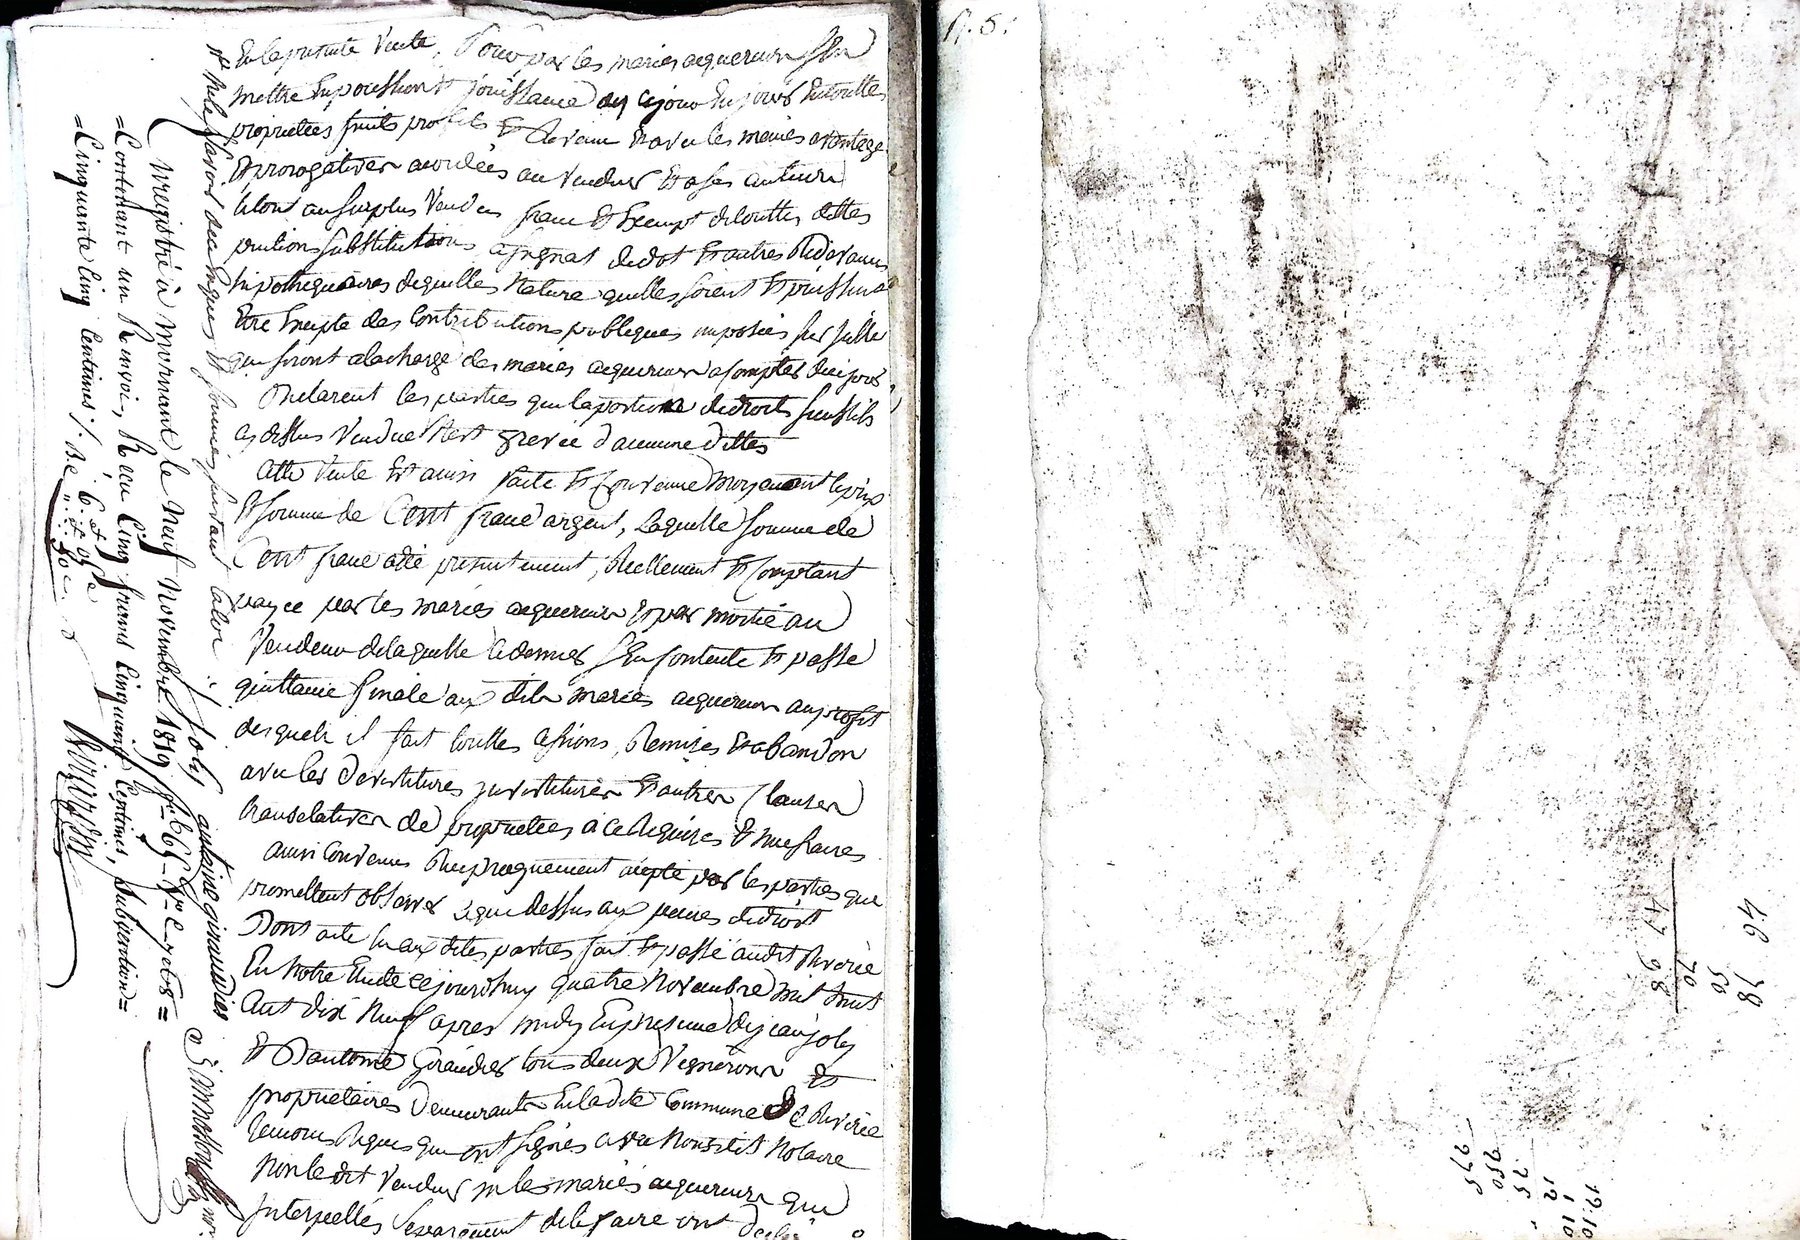 En la presente vente, pour par les mariés acquereurs s'En
mettre En possession & jouissance dez cejour En jours En toutte
proprietées fruits profits & Revenu & avec les memes aventage
& prorogatives acordées au vendeur & a ses auteurs
le tout au surplus vendu franc & Exempt de touttes dettes
substitutions assignat de dot & autres Redevances
hipothequaires de quelles Nature quelles soient & puissent
Etre Excepte des Contributions publiques imposées sur Icelle
qui seront a la charge des mariés acquereurs a compter de ce jour
Declarent les parties que la portion de droits successifs
cy dessus vendue N'est grevée d'aucune dettes
cette vente Est ainsi faite & Convenue moyenant le prix
& somme de Cent franc argent, Laquelle somme de
Cent franc a été presentement, Reellement & Comptant
payée par les mariés acquereurs & par moitié au
vendeur de laquelle ce dernier s'En contente & passe
quittance finale aux dits mariés acquereurs au profit
desquels il fait touttes cessions, Remises & abandon
avec les devestitures investitures & autres Clauses
translatives de proprietées a ce Requises & necessaires
ainsi Convenu Reciproquement accepté par les parties que
promettent observer ce que dessus aux peines de droit
Dont acte lu aux dites parties fait & passé audit Riverie
En Notre Etude cejourd'huy quatre Novembre mil huit
Cent dix Neuf apres midy En presence de jean joly
& D'antoine Giraudier tous deux Vignerons &
proprietaires demeurants En ladite Commune de Riverie
temoins Requis qui ont signés avec Nous dit Notaire
Non le dit vendeur ni les mariés acquereurs qui
Interpellés separement de le faire ont
Ne le savoir de ce Requis & sommés
joly antoine giraudier
Enregistré à Mornant le Neuf Novembre 1819
=Contenant un Renvoi, Reçu Cinq francs Cinquante Centimes, Subvention=
=Cinquante Cinq Centimes ·/·
47
98
70
56
78
46
275
250
25
12 10
1 10
19 10